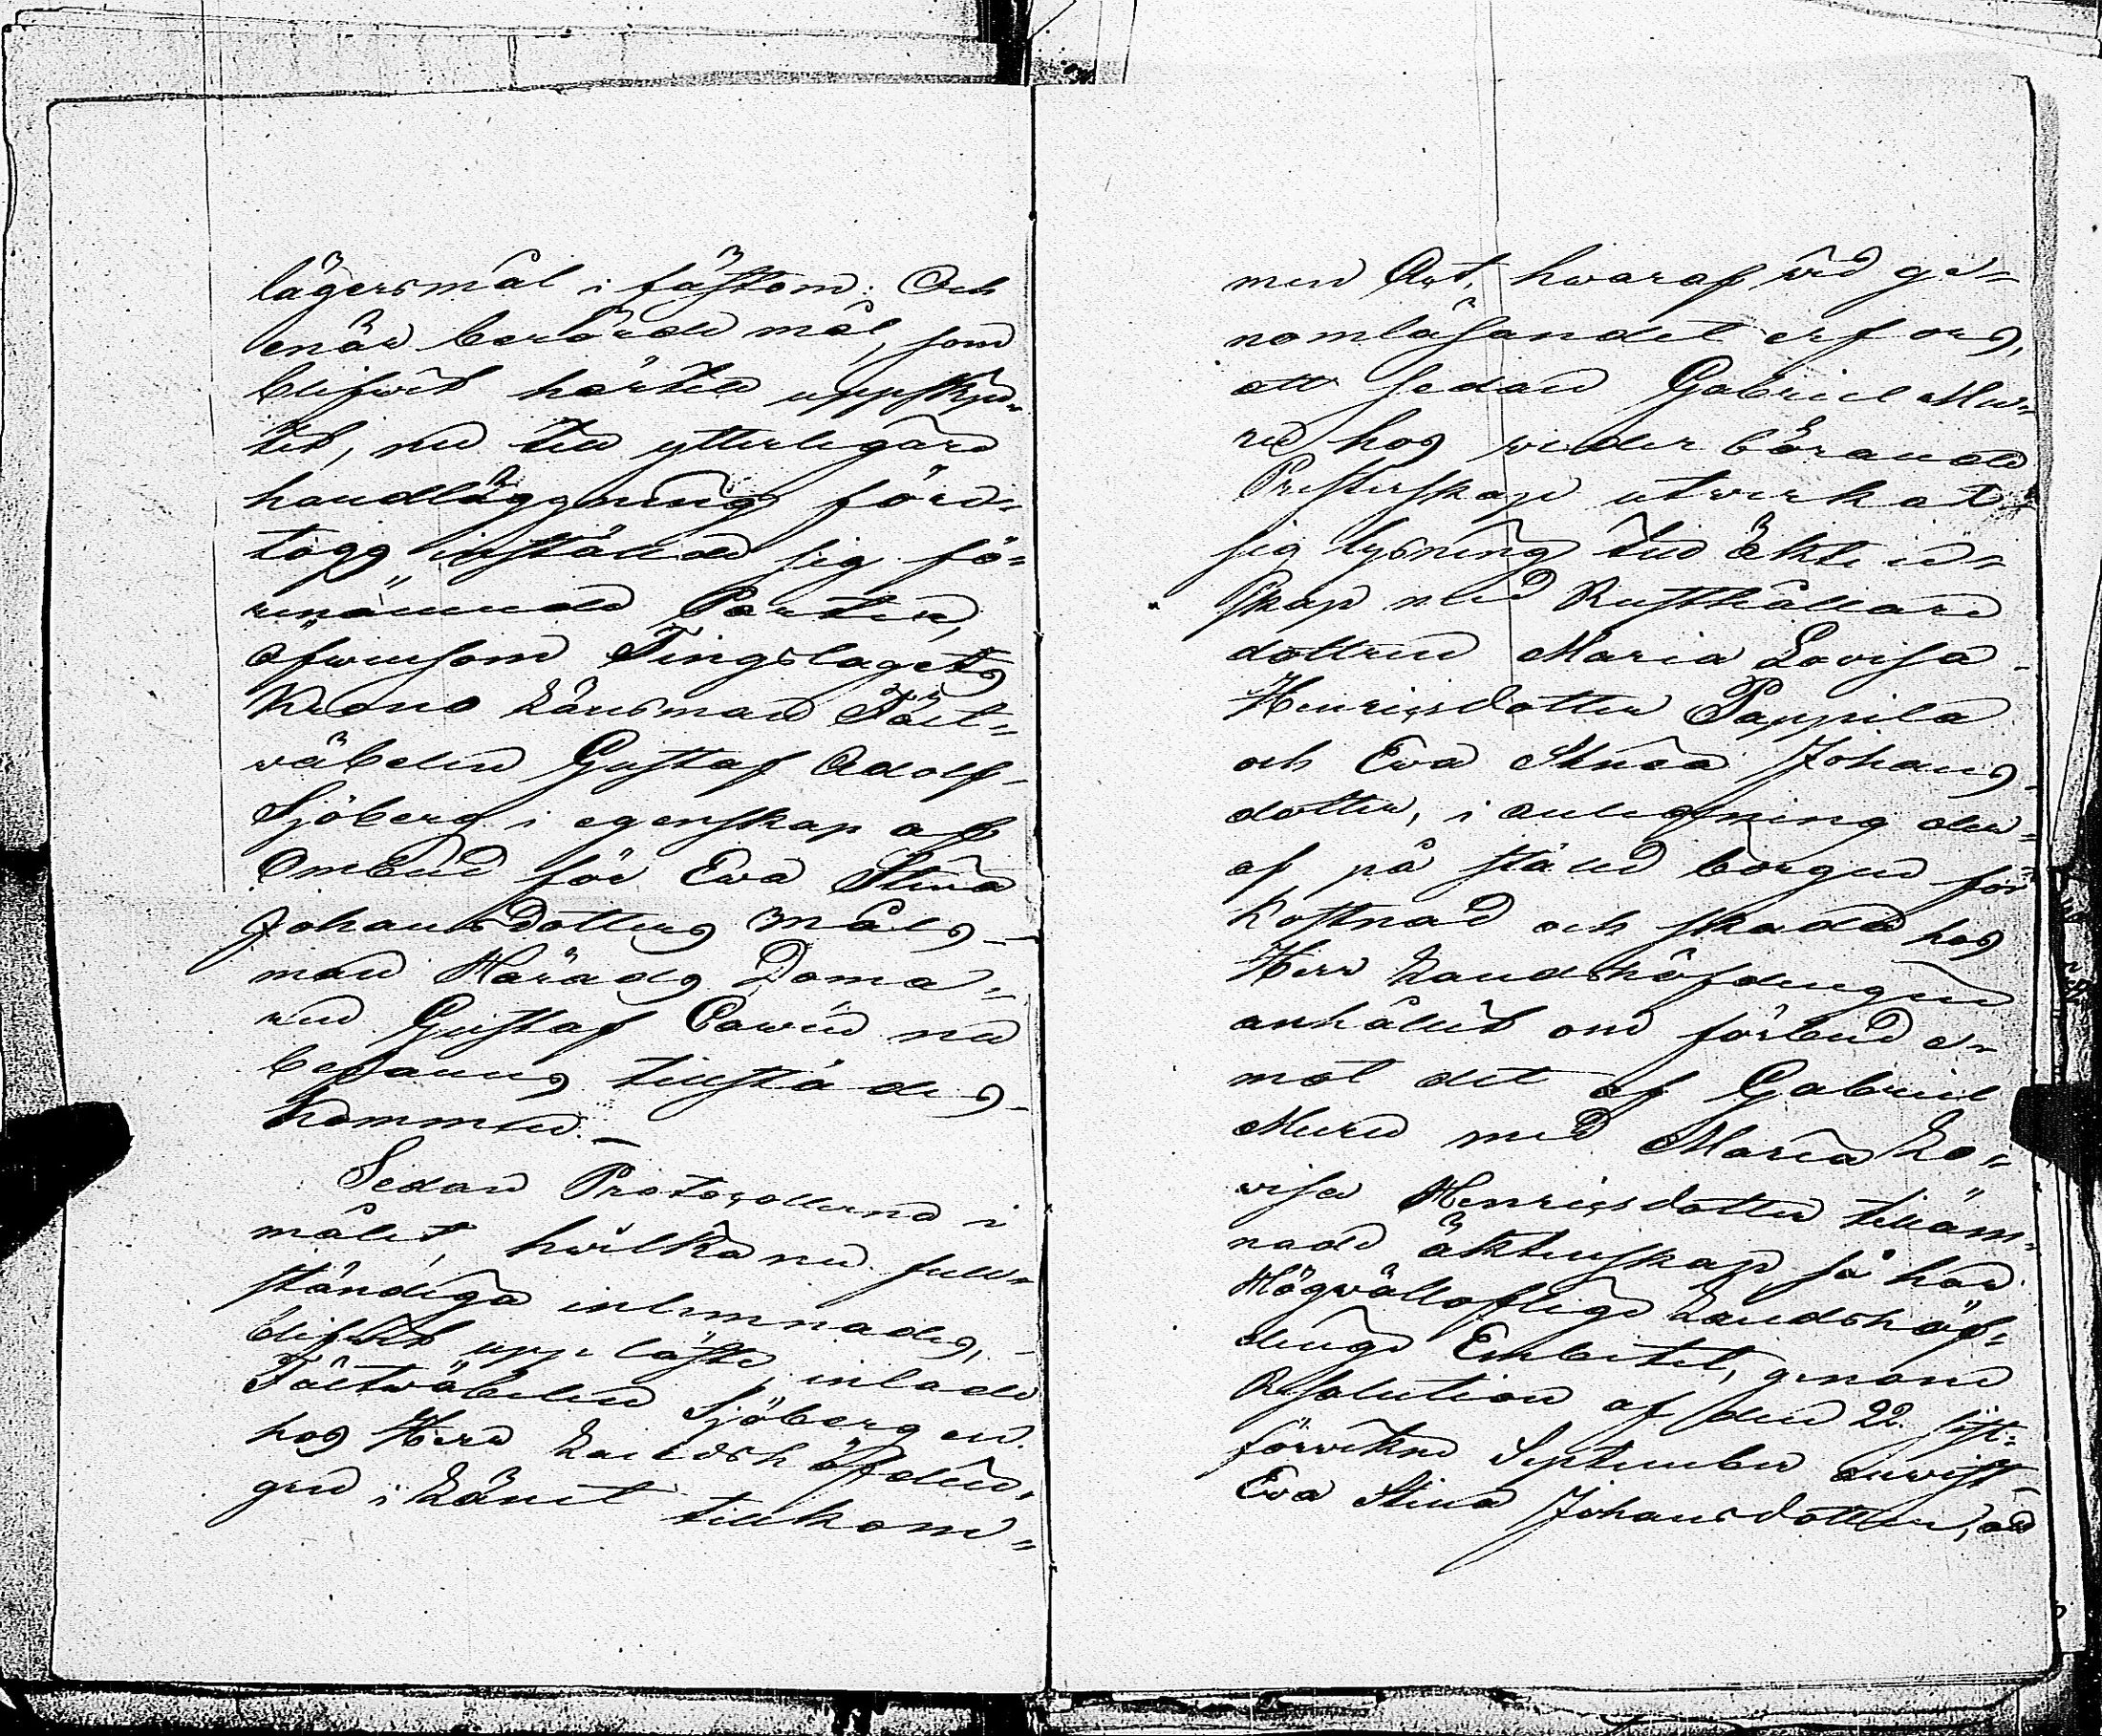 lägersmål i fästom; Och
enär berörde mål, som
blifwit härtill uppskju-
tit, nu till ytterligare
handläggning före-
togs, instälde sig fö-
renämnde Parter,
äfwensom Tingslagets
Krono Länsman Fält-
wäbelen Gustaf Adolf
Sjöberg i egenskap af
Ombud för Eva Stina
Johansdotters Måls-
man Härads Doma-
ren Gustaf Pawie nu
befanns tillstädes-
kommen.-
Sedan Protocollerne i
målet, hwilka nu full-
ständiga inlemnades,
blifwit upp läste, inlade
Fältwäbelen Sjöberg en
hos Herr Landshöfdin-
gen i Länet tillkom-
men Act, hwaraf wid ge-
nomläsandet erfors,
att sedan Gabriel Mu-
ru hos wederbörande
Presterskap utwerkat
sig lysning till ächten-
skap med Rusthållare
dottren Maria Lovisa
Henricsdotter Pappila
och Eva Stina Johans
dotter, i anledning der-
af på ställd borgen för
kostnad och skada hos
Herr Landshöfdingen
anhållit om förbud e-
mot det af Gabriel
Muru med Maria Lo-
visa Henricsdotter tilläm-
nade äktenskap, så har
Högwällofliga Landshöf-
dinge Embetet, genom
Resolution af den 22. sist-
förwikne September anwist
Eva Stina Johansdotter, att